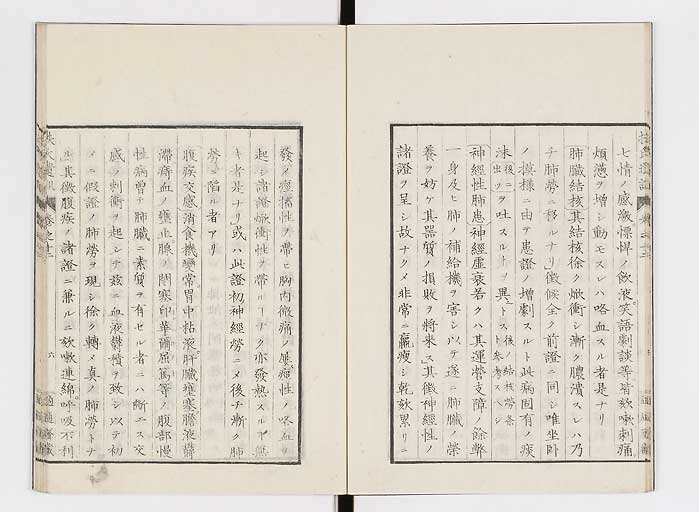 七情ノ感激慓悍ノ飲液笑語劇談等皆欬嗽刺痛
煩憑ヲ增シ動モスレハ咯血スル者是ナリ
肺臟結核其結核徐ク焮衝シ漸ク膿潰スレハ乃
チ肺勞ニ移ルナリ徴候全ク前證ニ同シ唯坐臥
ノ模樣ニ由テ患證ノ增劇スルト此病固有ノ痰
沫後ニ出ツヲ吐スルトヲ異トスト後ノ結核勞条参考スヘシ
神經性肺患神經虛衰若クハ其運營支障ノ餘弊
一身及ヒ肺ノ補給機ヲ害シ以テ遂ニ肺臟ノ榮
養ヲ妨ケ其器質ノ損敗ヲ將來ス其徴神經性ノ
諸證ヲ呈シ故ナクメ非常ニ羸瘦シ乾欬累リニ
發メ痙攣性ヲ帶ヒ胸内微痛ノ性ノ咯血ヲ
起シ諸證焮衝性ヲ帶ルーナク亦發熱スルヤ無
キ者是ナリ或ハ此證初神經勞ニメ後チ漸ク肺
勞ニ陷ル者アリ
腹疾交感消食機變常胃中黏液肝臟壅塞膽液鬱
滯瘀血ノ壅止腺ノ閉塞印華爾屈篤等ノ腹部慢
性病曽テ肺臟ニ素質ヲ有セル者ニハ漸ニス交
感ノ刺衝ヲ起シテ玆ニ血液鬱積ヲ致シ以テ初
メニ假證ノ肺勞ヲ現シ徐ク轉メ真ノ肺勞トナ
ル其徴腹疾ノ諸證ニ兼ルニ欬嗽連綿呼吸不利
六